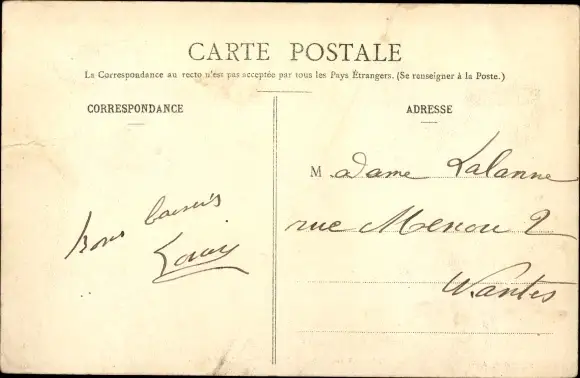 CARTE POSTALE
La Correspondance au recto n'est pas acceptée par tous les Pays Étrangers. (Se renseigner à la Poste.)
CORRESPONDANCE
Bons baisers
ADRESSE
Madame Lalanne
rue Menou 2
Nantes